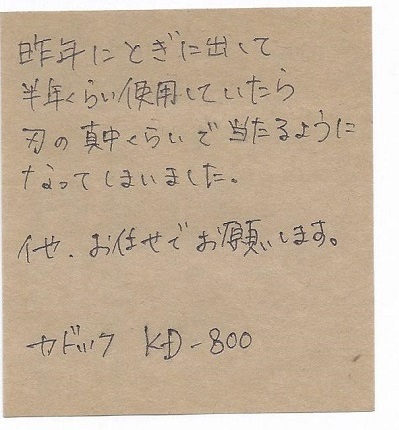 昨年にとぎに出して
半年くらい使用していたら
刃の真中くらいで当たるように
なってしまいました。
他、お任せでお願いします。
カドック KD-800